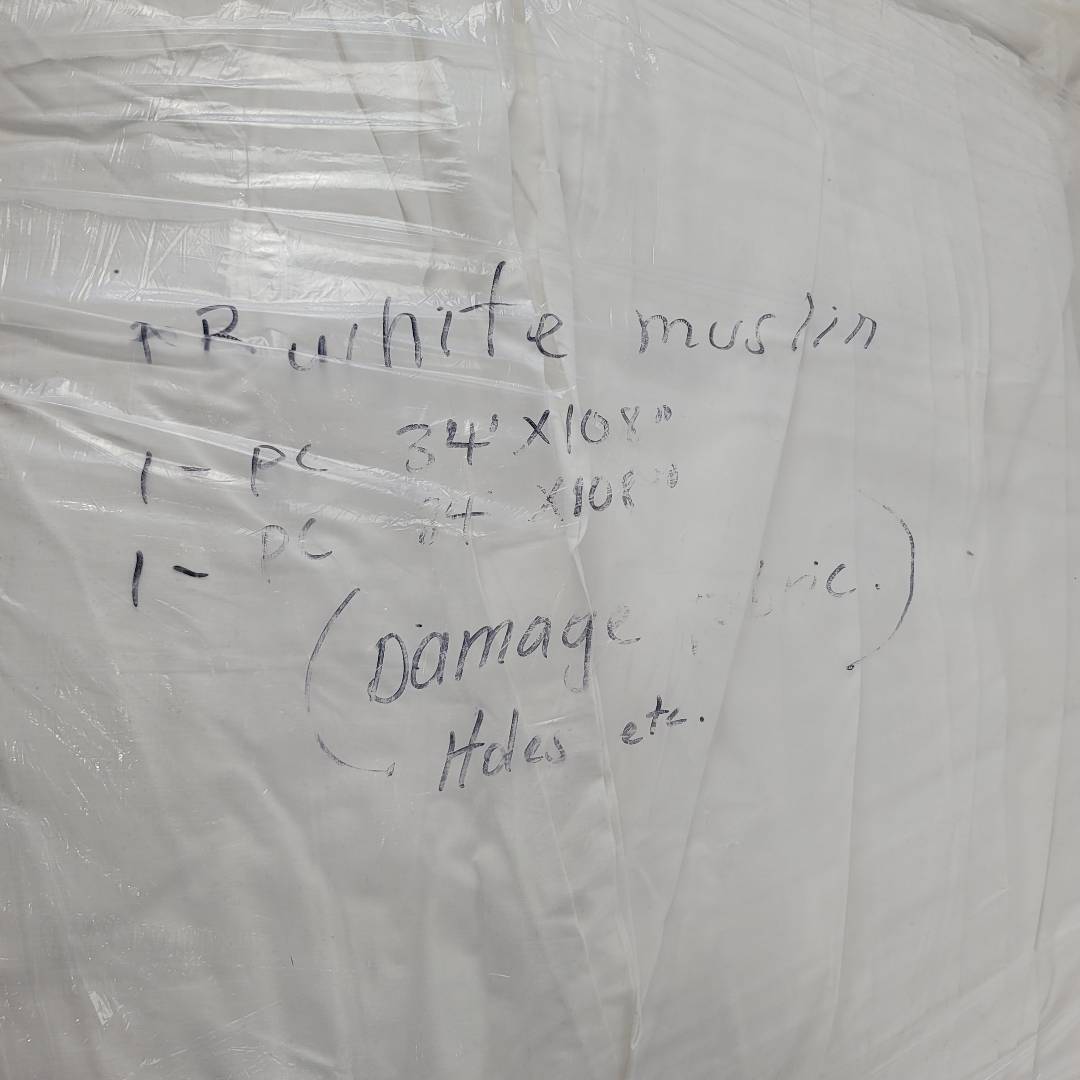 FR white muslin
1- PC 34' X108"
1- PC 34' X108"
(Damage fabric.)
Holes etc.